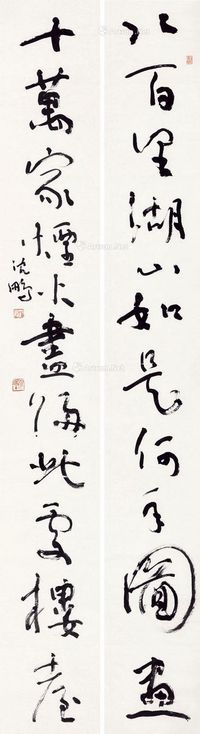 八百里湖山知是何年圖畫
十萬家煙火盡歸此處樓臺
沈鵬